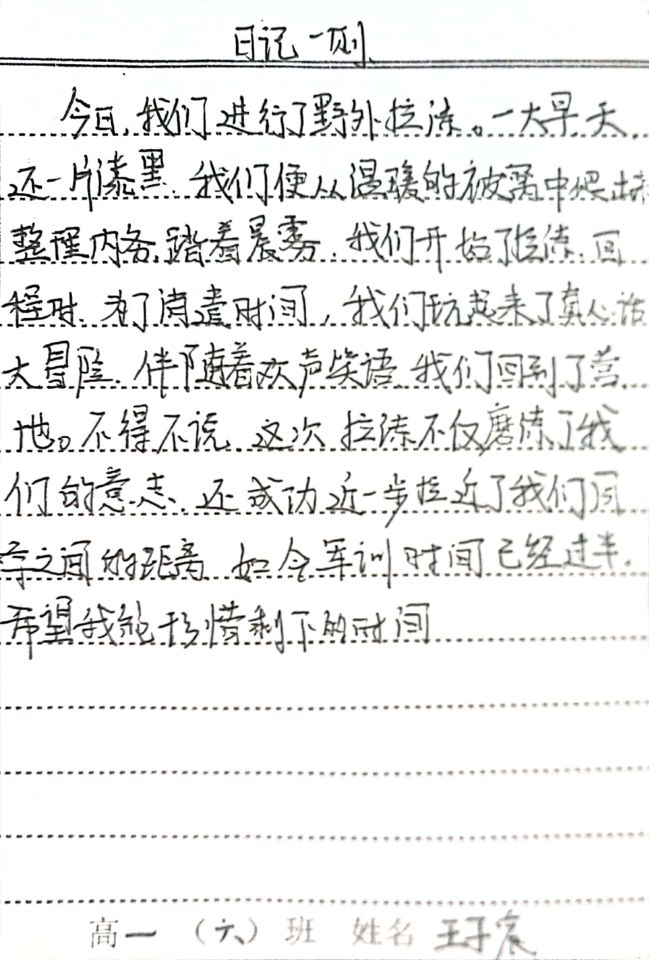 日记一则
今日,我们进行了野外拉练。一大早天
还一片漆黑,我们便从温暖的被窝中爬出来
整理内务,踏着晨雾,我们开始了拉练,回
程时,为了消遣时间,我们玩起来了真心话
大冒险,伴随着欢声笑语,我们回到了营
地。不得不说,这次拉练不仅磨练了我
们的意志,还成功近一步拉近了我们同
学之间的距离,如今军训时间已经过半,
希望我能珍惜剩下的时间
高一(六)班 姓名 王子宸